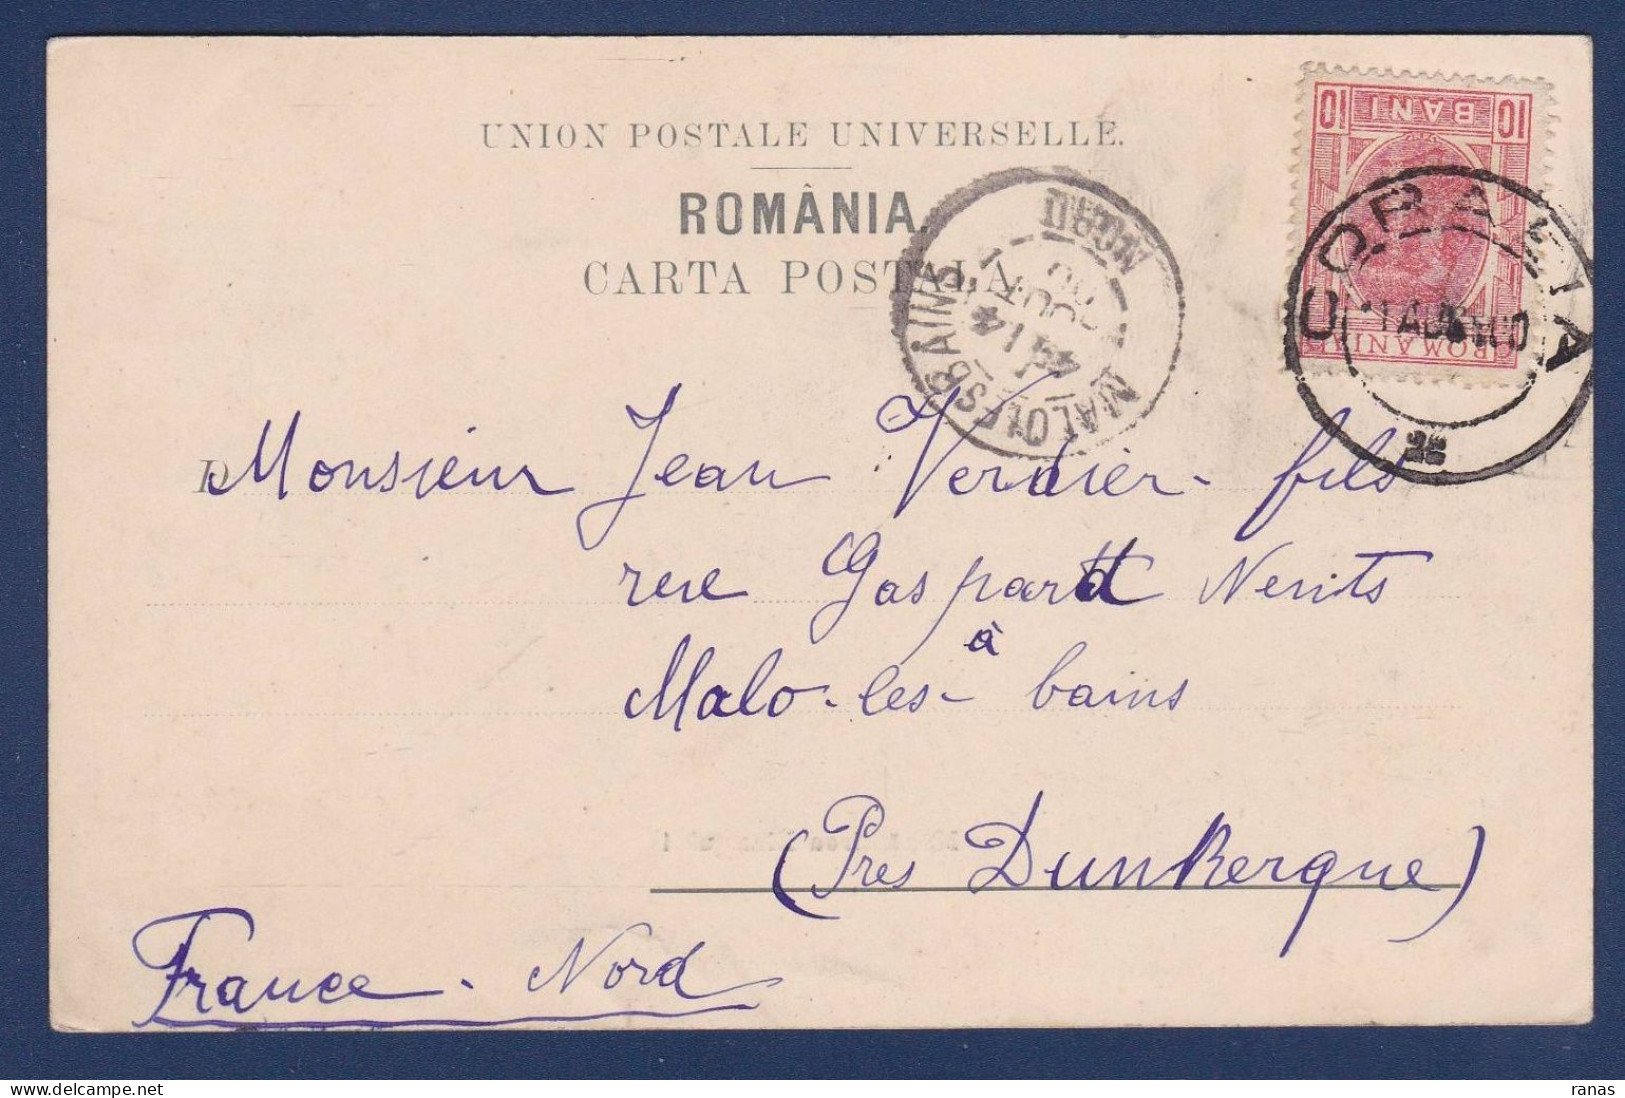 UNION POSTALE UNIVERSELLE.
ROMÂNIA.
CARTA POSTALA
10 BANI 10
ROMANIA
CORABIA
NORD
MALO LES BAINS
Monsieur Jean Verdier fils
rue Gaspard
à
Malo-les-bains
(Pres Dunkerque)
France. Nord
ranas